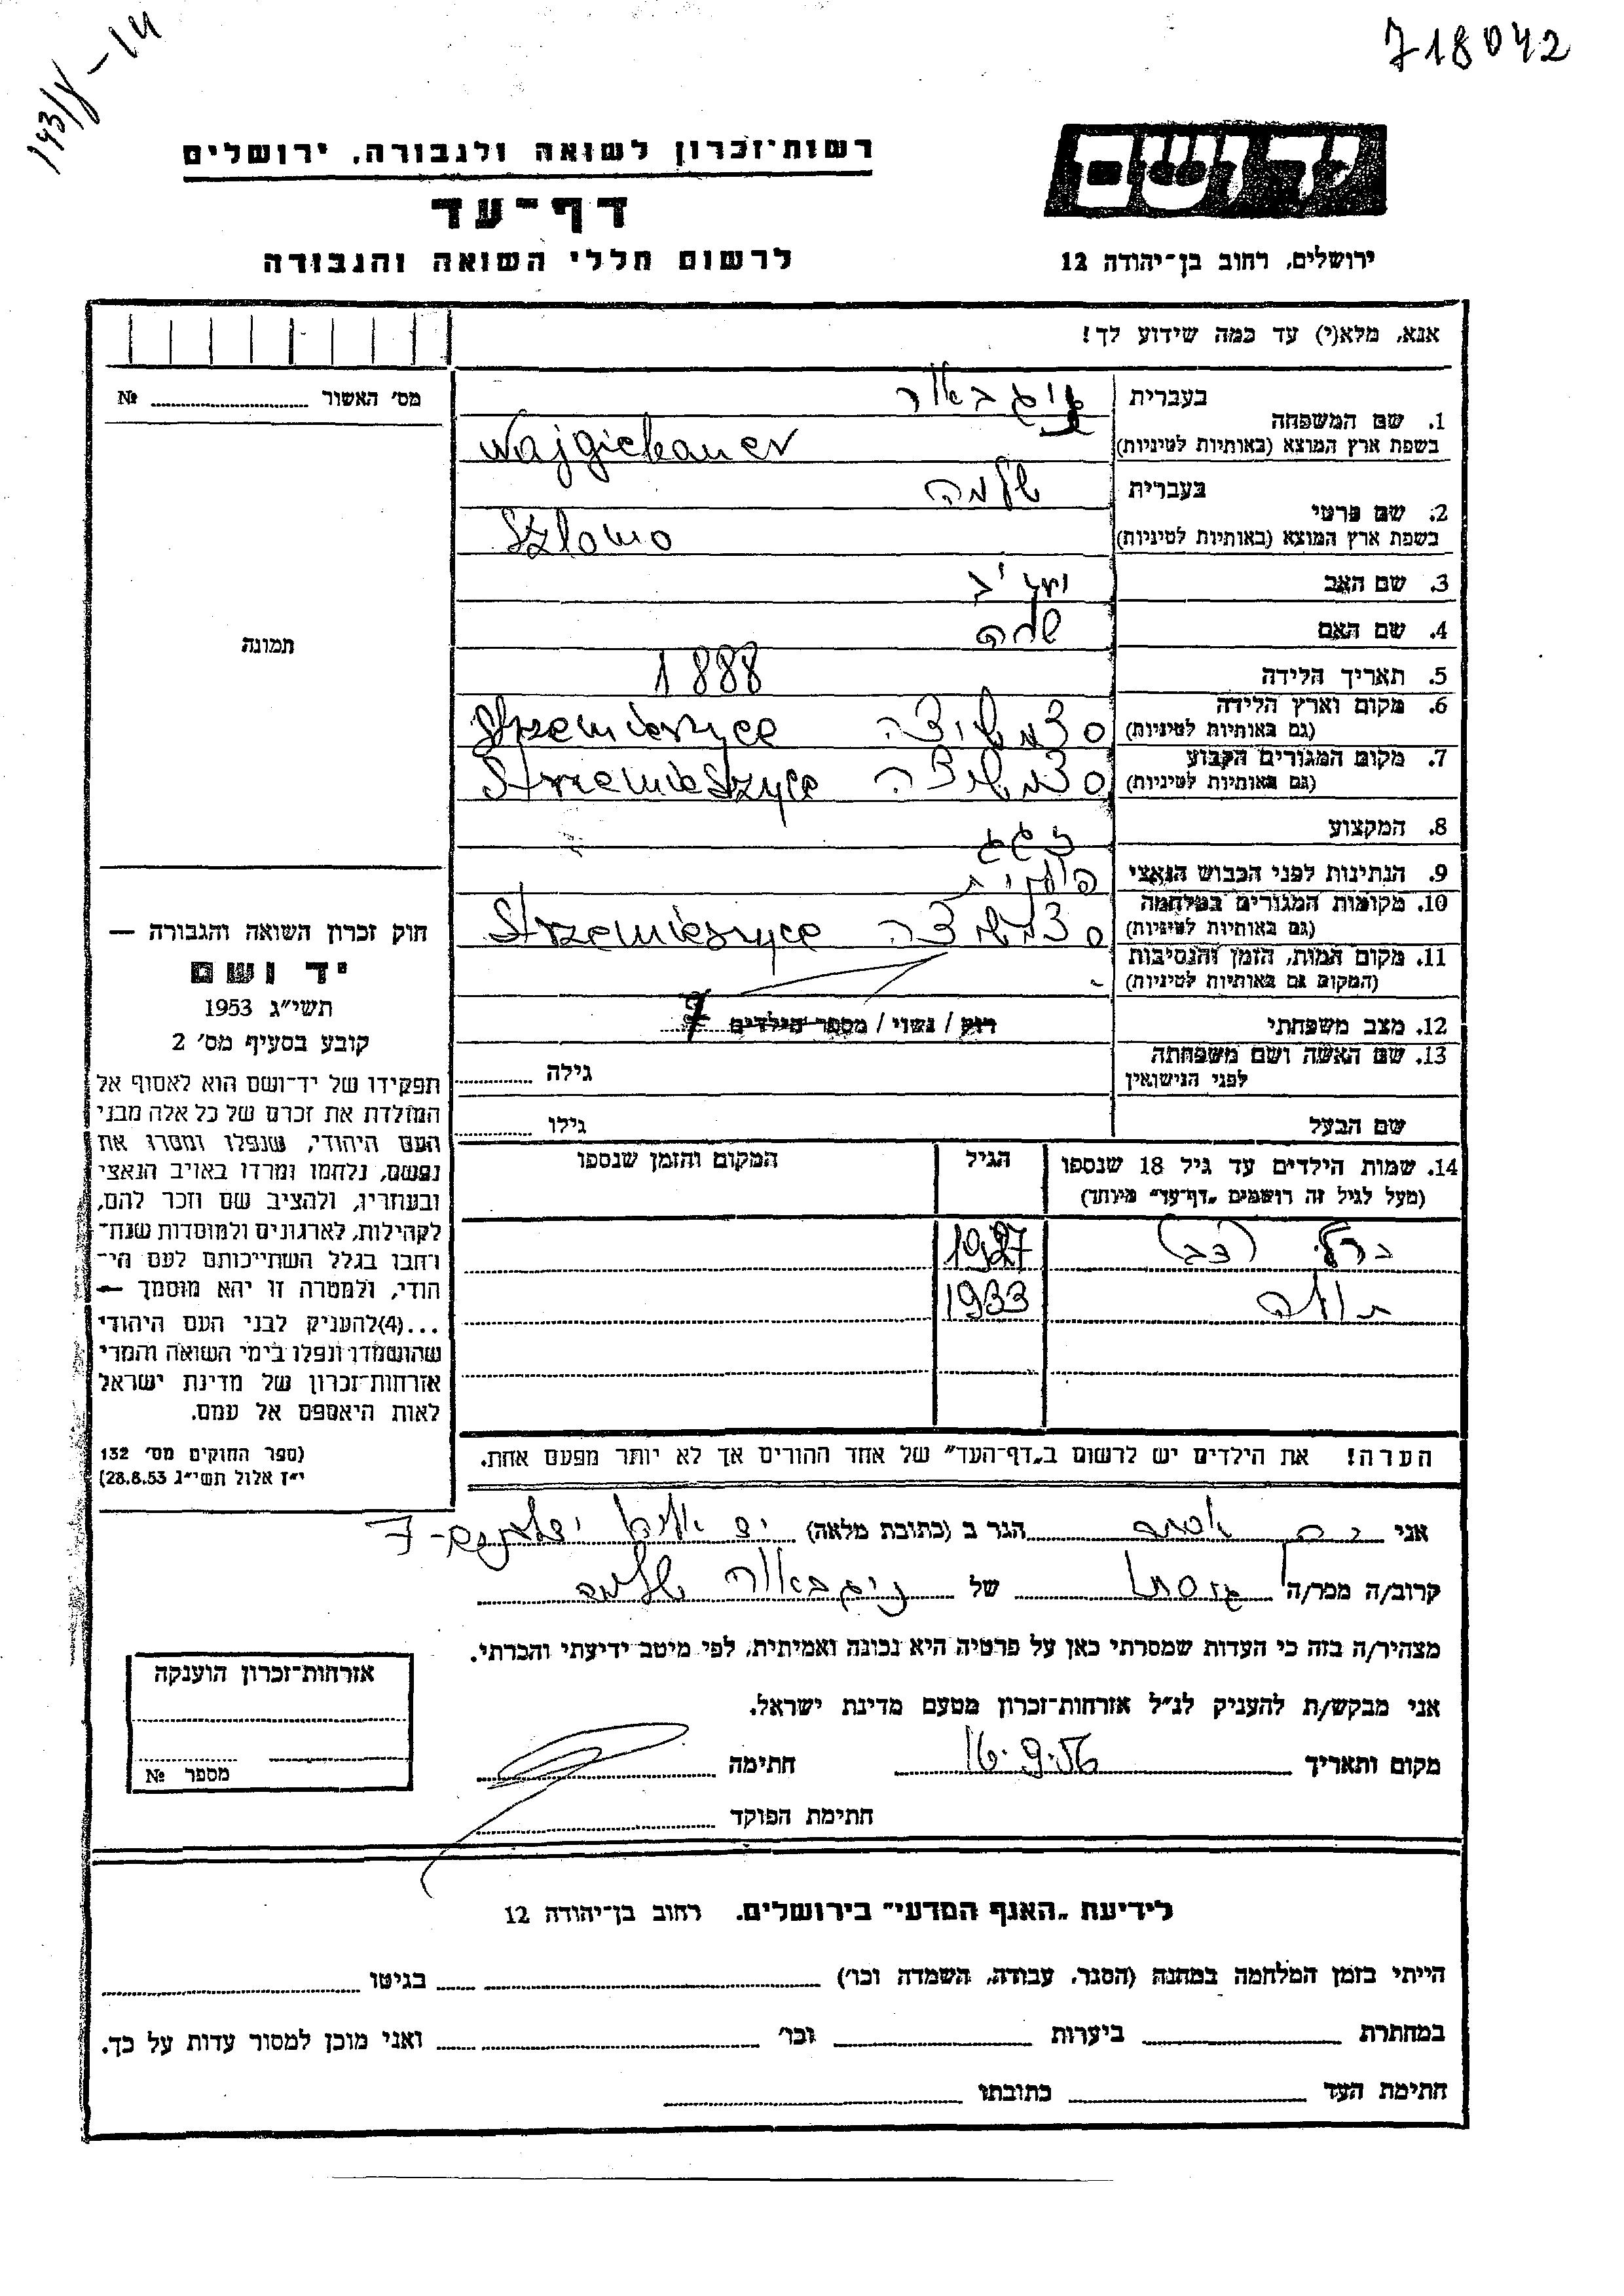 718042
יד ושם
רשות־זכרון לשואה ולגבורה, ירושלים
דף־עד
לרשום חללי השואה והגבורה
ירושלים, רחוב בן־יהודה 12
אנא, מלא(י) עד כמה שידוע לך!
מס׳ האשור № 
1. שם המשפחה
בעברית
בשפת ארץ המוצא (באותיות לטיניות) Wajgiebauer
2. שם פרטי
בעברית שלמה
בשפת ארץ המוצא (באותיות לטיניות) Szlomo
3. שם האב
4. שם האם שרה
5. תאריך הלידה 1888
6. מקום וארץ הלידה
(גם באותיות לטיניות) Strzemieszyce
7. מקום המגורים הקבוע
(גם באותיות לטיניות) Strzemieszyce
8. המקצוע זגג
9. הנתינות לפני הכבוש הנאצי פולנית
10. מקומות המגורים במלחמה
(גם באותיות לטיניות) Strzemieszyce
11. מקום המות, הזמן והנסיבות
(המקום גם באותיות לטיניות)
12. מצב משפחתי רוק / נשוי / מספר הילדים 7
13. שם האשה ושם משפחתה
לפני הנישואין גילה
שם הבעל גילו
14. שמות הילדים עד גיל 18 שנספו הגיל המקום והזמן שנספו
(מעל לגיל זה רושמים „דף־עד״ מיוחד)
ברל (דב) 1927
1933
הערה! את הילדים יש לרשום ב„דף־העד״ של אחד ההורים אך לא יותר מפעם אחת.
תמונה
חוק זכרון השואה והגבורה —
יד ושם
תשי״ג 1953
קובע בסעיף מס׳ 2
תפקידו של יד־ושם הוא לאסוף אל
המולדת את זכרם של כל אלה מבני
העם היהודי, שנפלו ומסרו את
נפשם, נלחמו ומרדו באויב הנאצי
ובעוזריו, ולהציב שם וזכר להם,
לקהילות, לארגונים ולמוסדות שנח־
רחבו בגלל השתייכותם לעם הי־
הודי, ולמטרה זו יהא מוסמך —
...(4)להעניק לבני העם היהודי
שהושמדו ונפלו בימי השואה והמרי
אזרחות־זכרון של מדינת ישראל
לאות היאספם אל עמם.
(ספר החוקים מס׳ 132
י״ז אלול תשי״ג 28.8.53)
אני הגר ב (כתובת מלאה)
קרוב/ה מכר/ה של שלמה
מצהיר/ה בזה כי העדות שמסרתי כאן על פרטיה היא נכונה ואמיתית, לפי מיטב ידיעתי והכרתי.
אני מבקש/ת להעניק לנ״ל אזרחות־זכרון מטעם מדינת ישראל.
מקום ותאריך 16.9.56 חתימה
חתימת הפוקד
אזרחות־זכרון הוענקה
מספר №
לידיעת „האגף המדעי״ בירושלים, רחוב בן־יהודה 12
הייתי בזמן המלחמה במחנה (הסגר, עבודה, השמדה וכו׳) בגיטו
במחתרת ביערות וכו׳ ואני מוכן למסור עדות על כך.
חתימת העד כתובתו